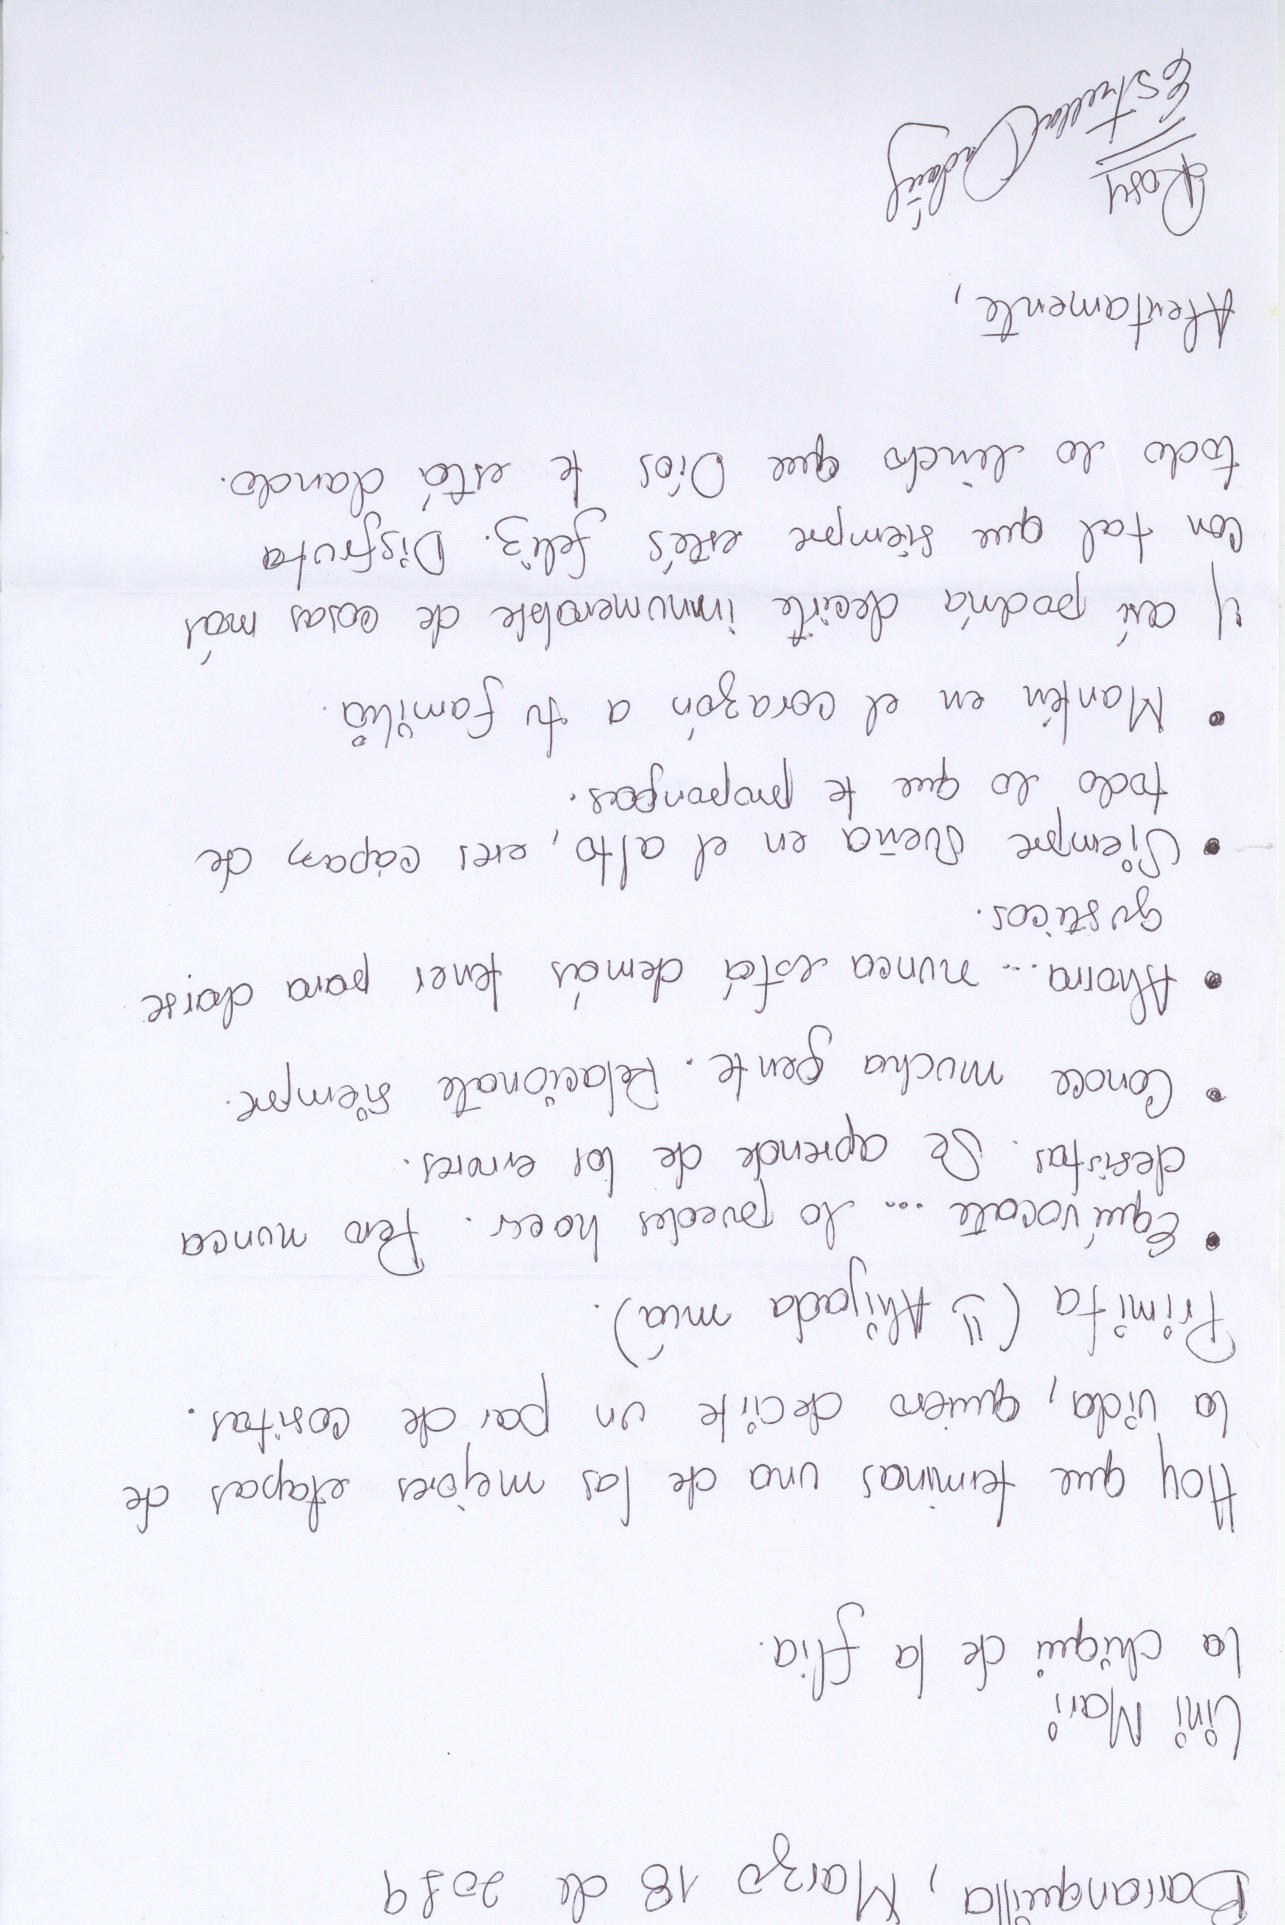 Barranquilla, Marzo 18 de 2019
Lini Mari
La chiqui de la flia.
Hoy que terminas una de las mejores etapas de
la vida, quiero decirte un par de cositas.
Primita (Ahijada mía).
• Equívocate... lo puedes hacer. Pero nunca
desistas. Se aprende de los errores.
• Conoce mucha gente. Relacionate siempre.
• Ahorra... nunca está demás tener para darse
gusticos.
• Siempre sueña en el alto, eres cápaz de
todo lo que te propongas.
• Mantén en el corazón a tu familia.
Y así podría decirte innumerable de cosas más
con tal que siempre estés feliz. Disfruta
todo lo lindo que Díos te está dando.
Atentamente,
Rosy
Estrella Ordóñez